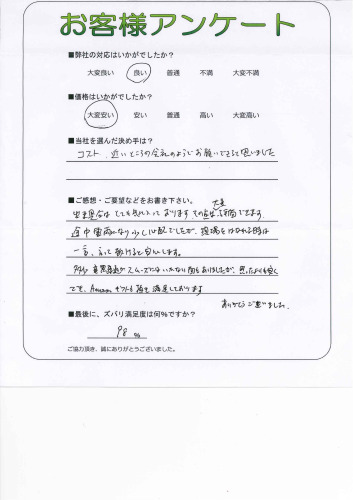 お客様アンケート
■弊社の対応はいかがでしたか？
大変良い 良い 普通 不満 大変不満
■価格はいかがでしたか？
大変安い 安い 普通 高い 大変高い
■当社を選んだ決め手は？
コスト、近いところの会社のようでお願いできると思いました
■ご感想・ご要望などをお書き下さい。
大変
出来具合はとても気に入っております その点は 満足できます。
途中雷雨になり少し心配でしたが、現場をはなれる時は
一言、言って頂けると良いです。
多少 意思疎通がスムーズにはいかない面もありましたが、
でも、Amazonギフトも頂き満足しております
ありがとうございました。
■最後に、ズバリ満足度は何%ですか？
98 %
ご協力頂き、誠にありがとうございました。